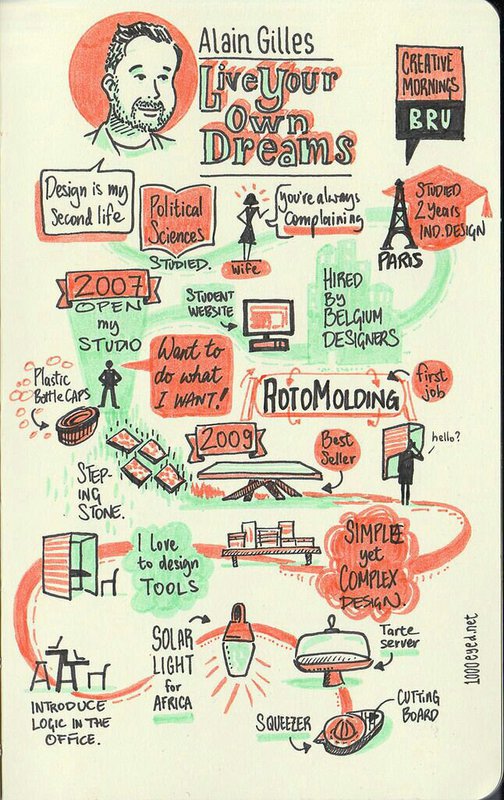 Alain Gilles
Live Your
Own
Dreams
CREATIVE
MORNINGS
BRU
Design is my
Second life
Political
Sciences
STUDIED.
wife
you're always
Complaining
STUDIED
2 years
IND. DESIGN
PARIS
2007
OPEN
my
STUDIO
STUDENT
WEBSITE
HIRED
BY
BELGIUM
DESIGNERS
Want to
do what
I WANT!
Plastic
BottleCAPS
ROTOMOLDING
first
job
hello?
2009
Best
Seller
STEP-
ING
STONE.
I love
to design
TOOLS
SIMPLE
yet
COMPLEX
DESIGN.
INTRODUCE
LOGIC IN THE
OFFICE.
SOLAR
LIGHT
for
AFRICA
Tarte
server
SQUEEZER
CUTTING
BOARD
1000eyed.net